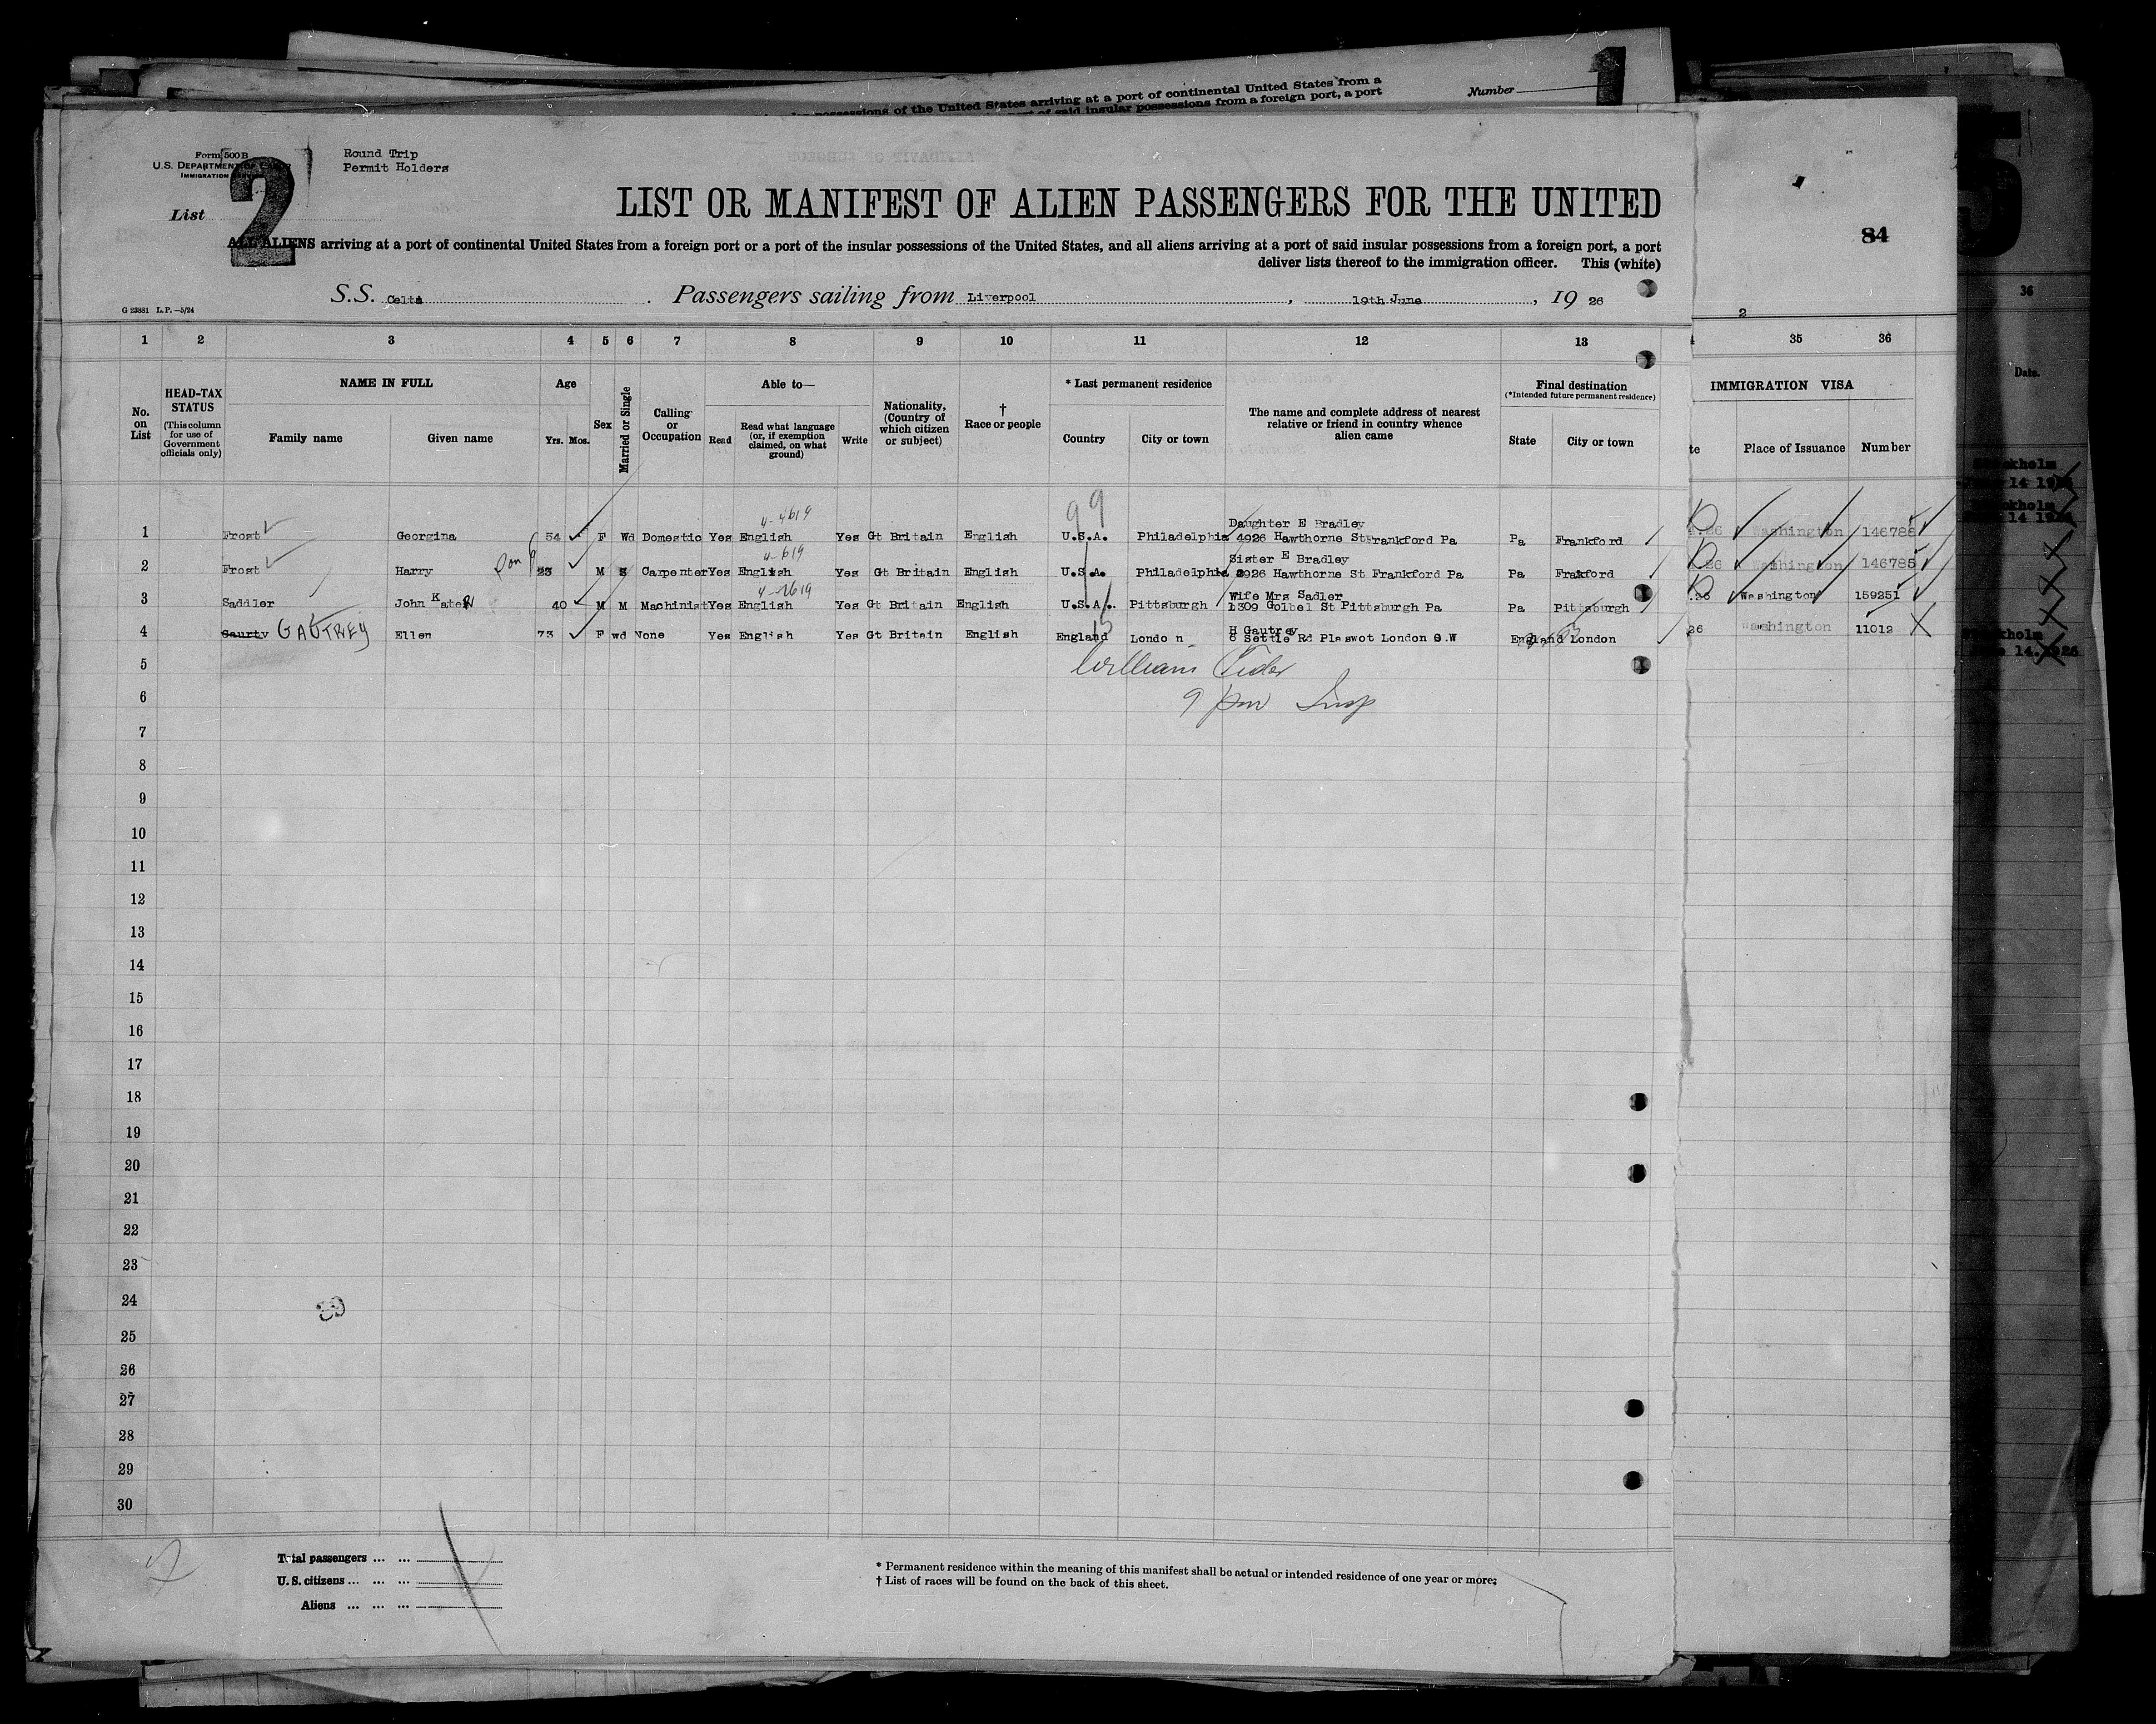 possessions of the United States arriving at a port of continental United States from a
of said insular possessions from a foreign port, a port
Number
1
Form 500 B
U.S. DEPARTMENT OF LABOR
IMMIGRATION SERVICE
Round Trip
Permit Holders
List
2
LIST OR MANIFEST OF ALIEN PASSENGERS FOR THE UNITED
84
ALL ALIENS arriving at a port of continental United States from a foreign port or a port of the insular possessions of the United States, and all aliens arriving at a port of said insular possessions from a foreign port, a port
deliver lists thereof to the immigration officer. This (white)
S.S. Celtic Passengers sailing from Liverpool, 19th June, 19 26
G 23881 L.P.—5/24
2
1 2 3 4 5 6 7 8 9 10 11 12 13 35 36
No. on List
HEAD-TAX STATUS
(This column for use of Government officials only)
NAME IN FULL
Family name Given name
Age
Yrs. Mos.
Sex
Married or Single
Calling or Occupation
Able to—
Read
Read what language (or, if exemption claimed, on what ground)
Write
Nationality, (Country of which citizen or subject)
† Race or people
* Last permanent residence
Country City or town
The name and complete address of nearest relative or friend in country whence alien came
Final destination
(*Intended future permanent residence)
State City or town
IMMIGRATION VISA
te Place of Issuance Number
36
Date.
99
4-4619
Daughter E Bradley
1 Frost Georgina 54 F Wd Domestic Yes English Yes Gt Britain English U.S.A. Philadelphia 4926 Hawthorne St Frankford Pa Pa Frankford 26 Washington 146786
4-619
Sister E Bradley
2 Frost Harry Son 23 M S Carpenter Yes English Yes Gt Britain English U.S.A. Philadelphia 4926 Hawthorne St Frankford Pa Pa Frakford 26 Washington 146785
4-2619
Wife Mrs Sadler
3 Saddler John Kater 40 M M Machinist Yes English Yes Gt Britain English U.S.A. Pittsburgh 1309 Golbel St Pittsburgh Pa Pa Pittsburgh .26 Washington 159251
15
H Gautrey
4 Gaurty GAUTREY Ellen 73 F wd None Yes English Yes Gt Britain English England London 6 Settle Rd Plaswot London S.W England London 26 Washington 11012
5
6
9 pm Insp
7
8
9
10
11
12
13
14
15
16
17
18
19
20
21
22
23
24
25
26
27
28
29
30
Total passengers ... ...
U.S. citizens ... ... ...
Aliens ... ... ...
* Permanent residence within the meaning of this manifest shall be actual or intended residence of one year or more.
† List of races will be found on the back of this sheet.